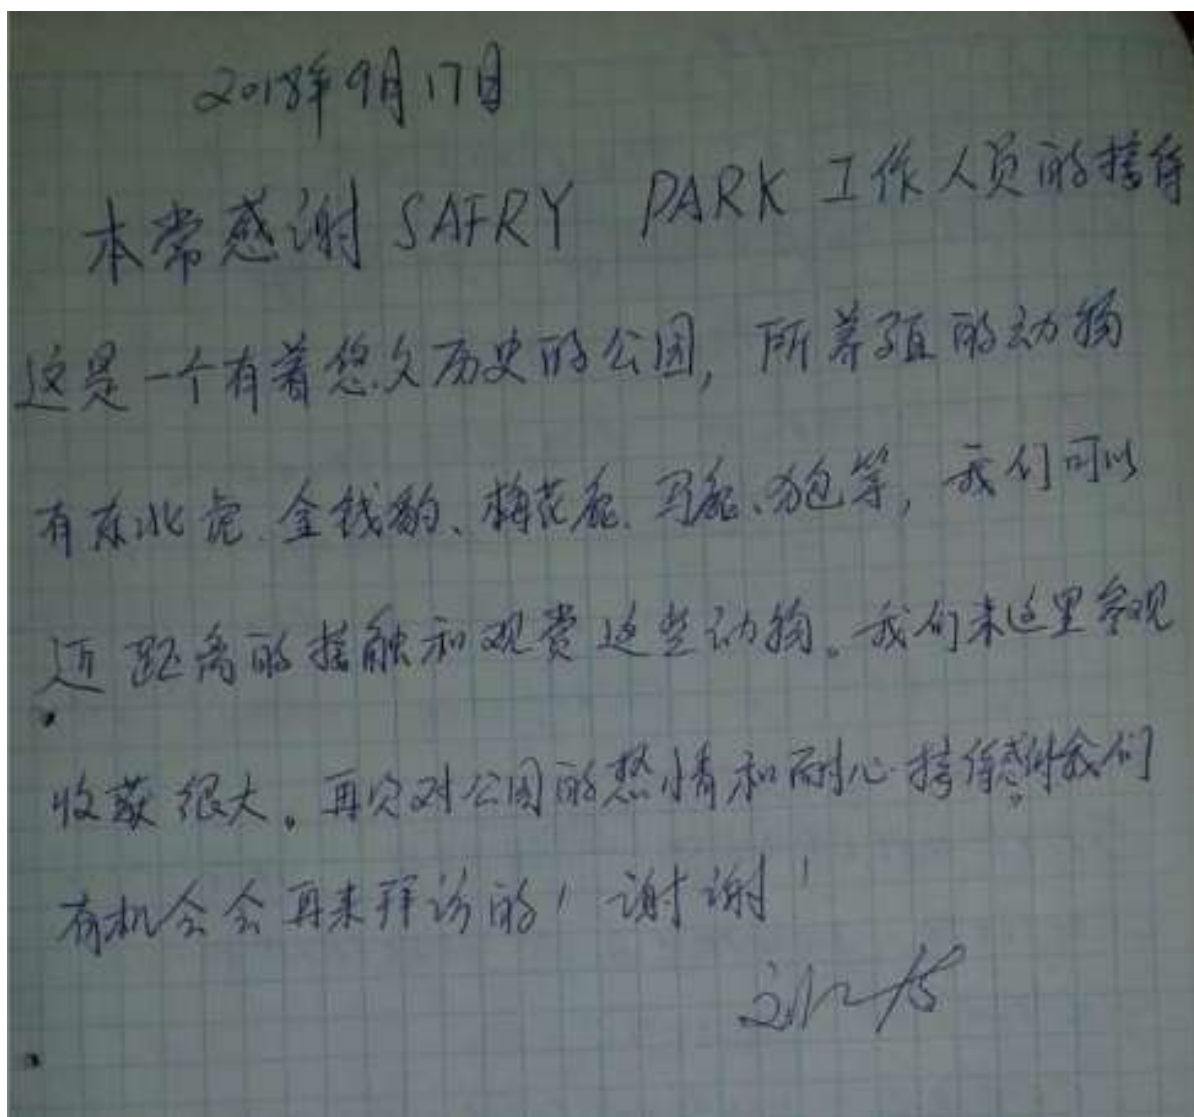 2018年9月17日
本常感谢 SAFRY PARK 工作人员的接待
这是一个有着悠久历史的公园, 所养殖的动物
有东北虎、金钱豹、梅花鹿、马鹿、狍等, 我们可以
近距离的接触和观赏这些动物。我们来这里参观
收获很大。再次对公园的热情和耐心接待感谢。我们
有机会会再来拜访的! 谢谢!